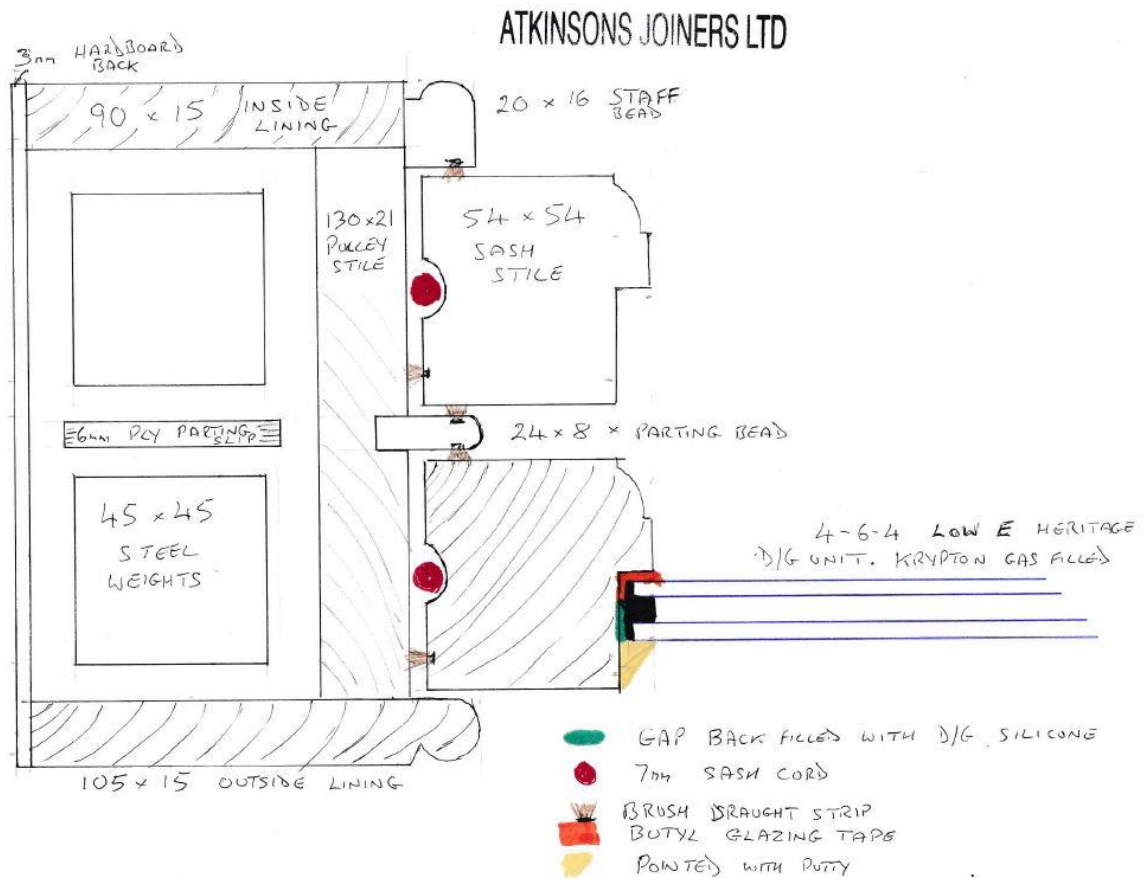 ATKINSONS JOINERS LTD
3mm HARDBOARD
BACK
90 x 15 INSIDE
LINING
20 x 16 STAFF
BEAD
130x21
PULLEY
STILE
54 x 54
SASH
STILE
6mm PLY PARTING
SLIP
24 x 8 x PARTING BEAD
45 x 45
STEEL
WEIGHTS
4-6-4 LOW E HERITAGE
D/G UNIT. KRYPTON GAS FILLED
105 x 15 OUTSIDE LINING
GAP BACK FILLED WITH D/G SILICONE
7mm SASH CORD
BRUSH DRAUGHT STRIP
BUTYL GLAZING TAPE
POINTED WITH PUTTY